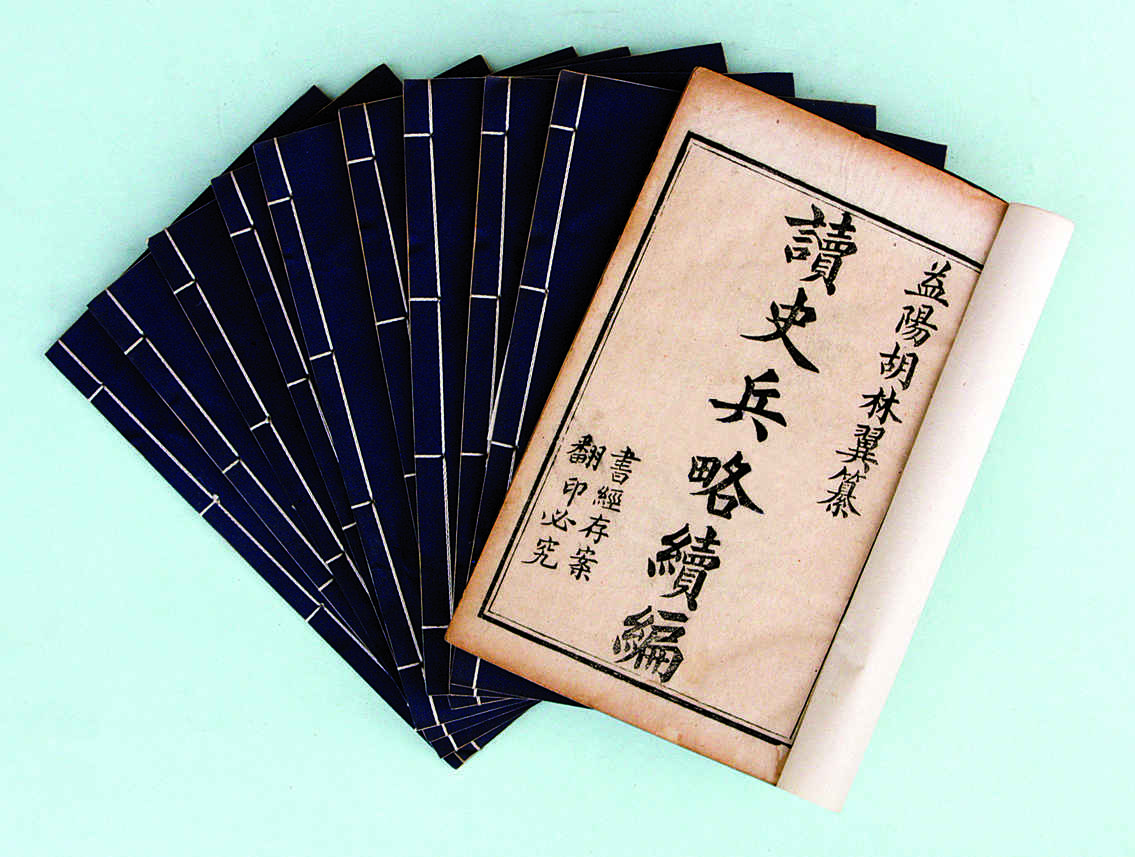 益陽胡林翼纂
讀史兵略續編
書經存案
翻印必究